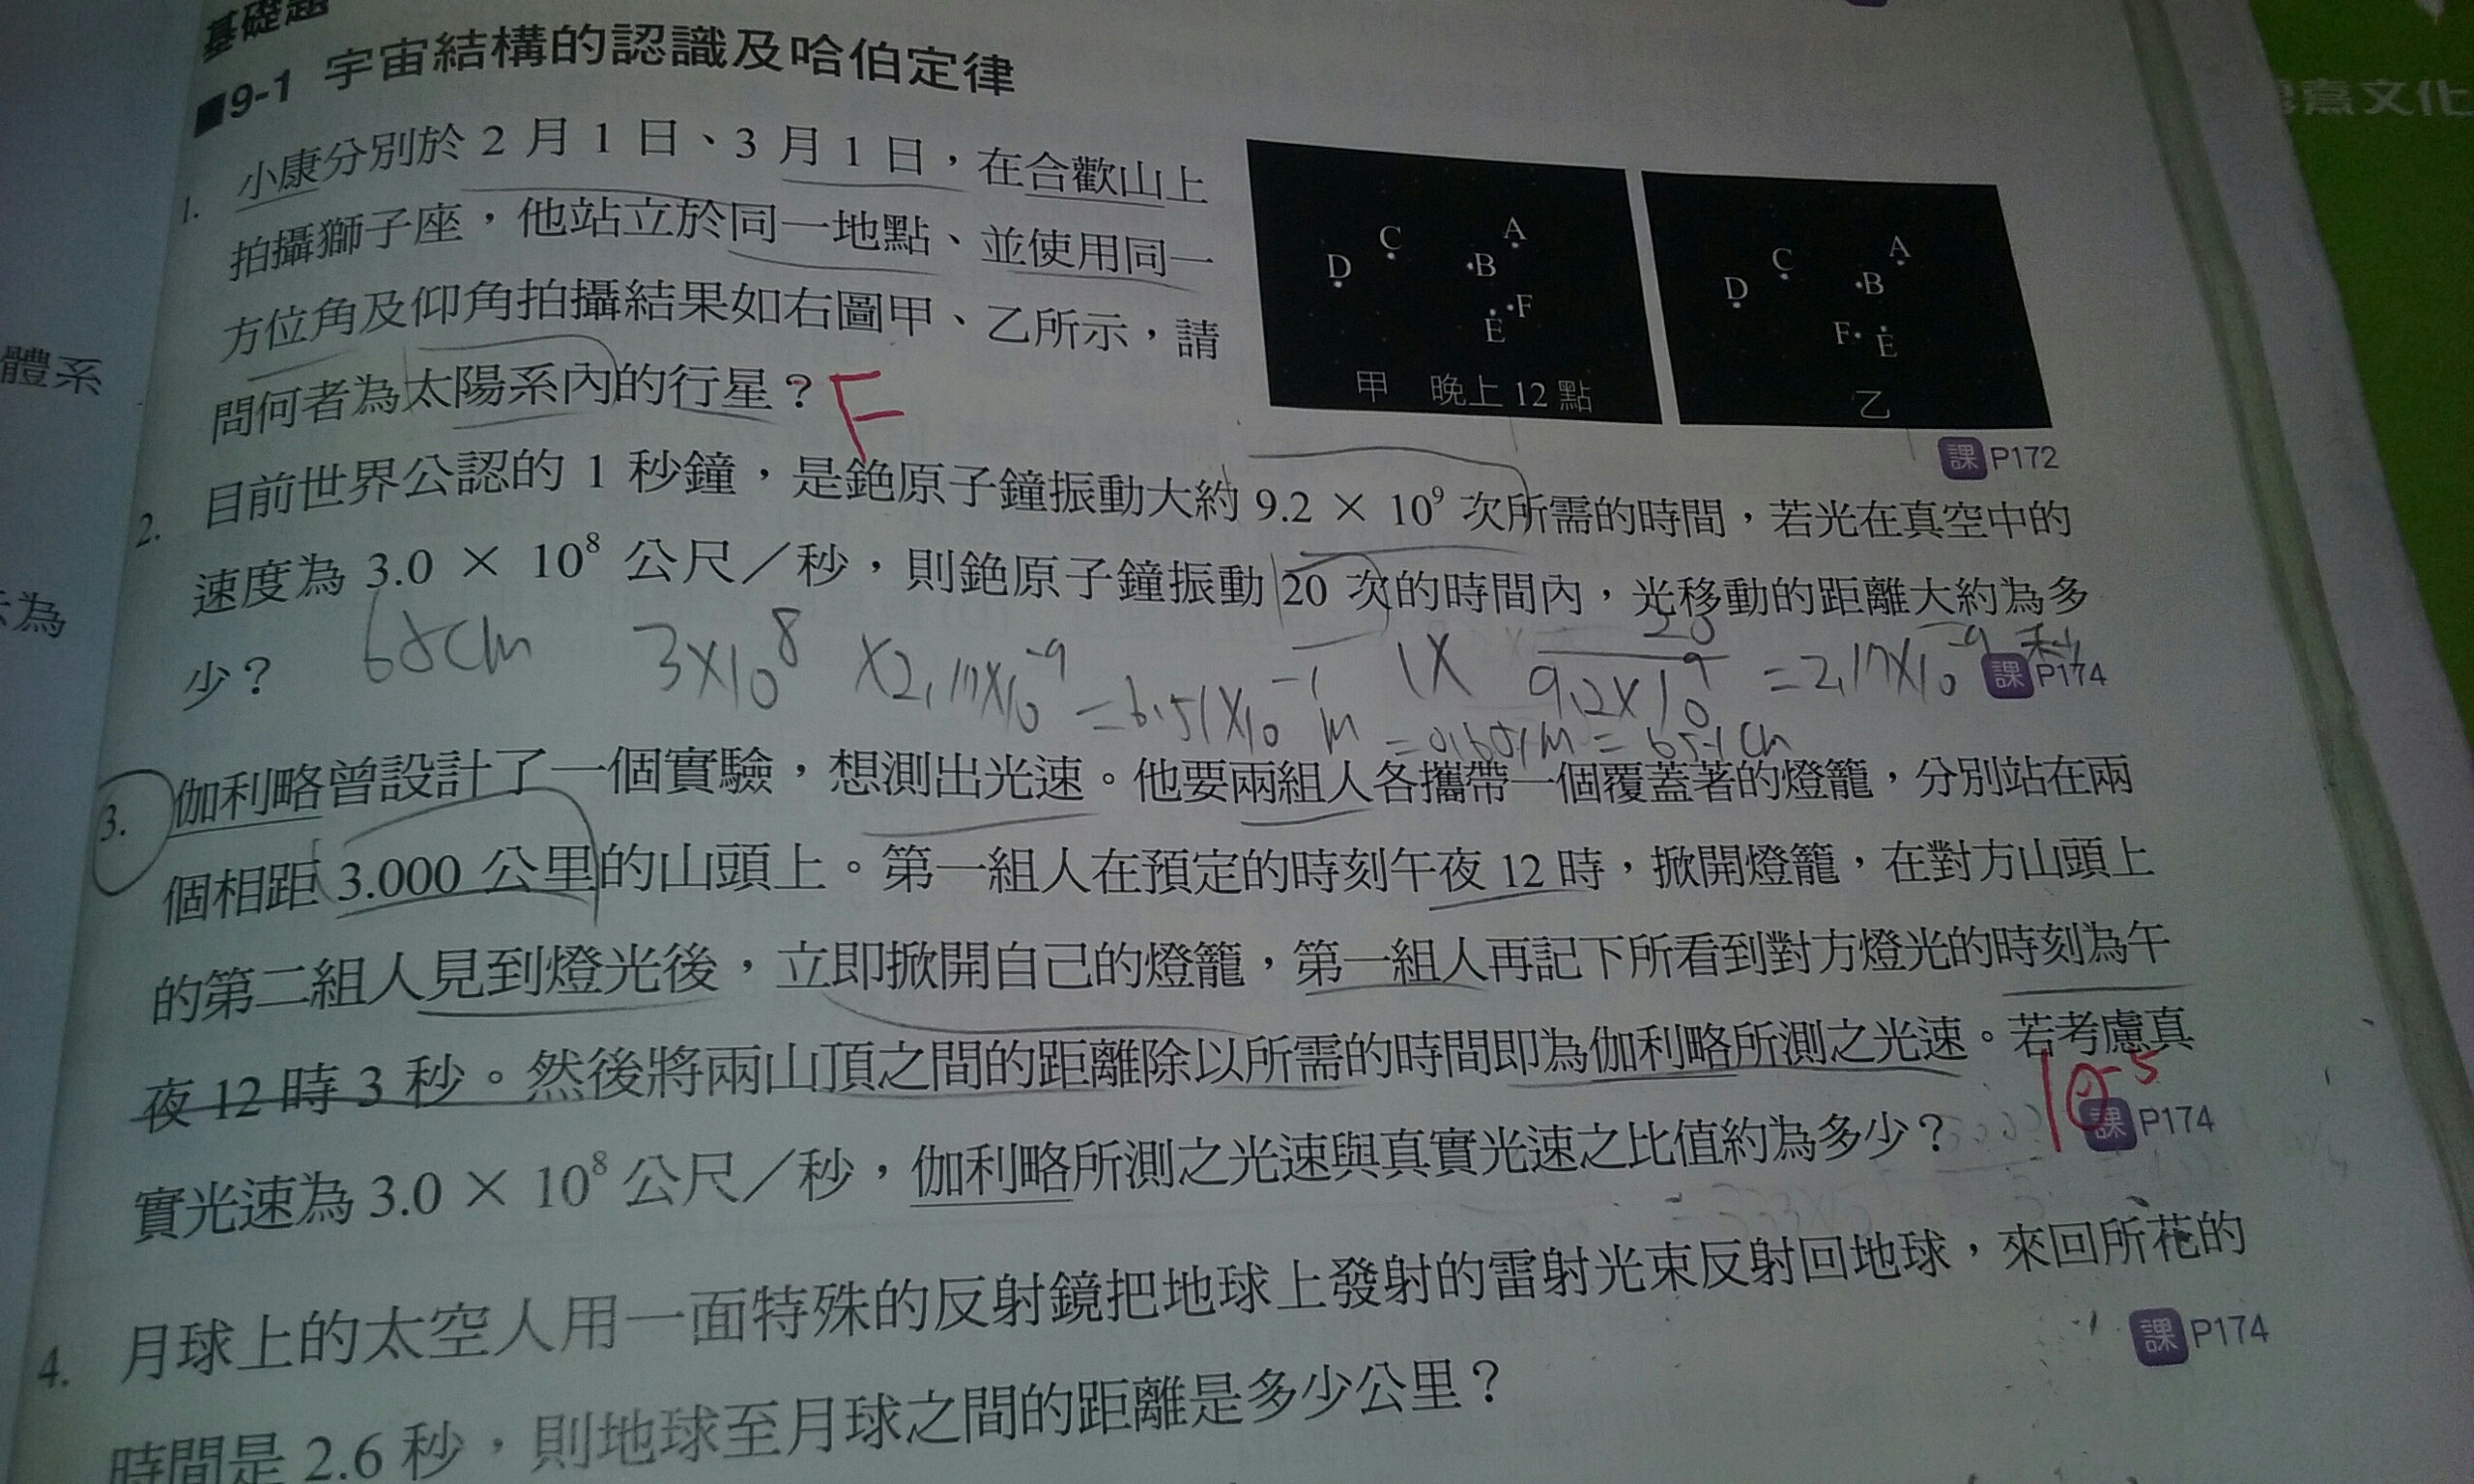 基礎題
■9-1 宇宙結構的認識及哈伯定律
1. 小康分別於 2 月 1 日、3 月 1 日，在合歡山上
拍攝獅子座，他站立於同一地點、並使用同一
方位角及仰角拍攝結果如右圖甲、乙所示，請
問何者為太陽系內的行星？ F
A
C
B
D
F
E
甲 晚上 12 點
A
C
B
D
F
E
乙
課 P172
2. 目前世界公認的 1 秒鐘，是銫原子鐘振動大約 9.2 × 10⁹ 次所需的時間，若光在真空中的
速度為 3.0 × 10⁸ 公尺／秒，則銫原子鐘振動 20 次的時間內，光移動的距離大約為多
少？ 65cm
3×10⁸ ×2.17×10⁻⁹ = 6.51×10⁻¹ m
1× 20 / 9.2×10⁹ = 2.17×10⁻⁹ 秒
= 0.651m = 65.1cm
課 P174
3. 伽利略曾設計了一個實驗，想測出光速。他要兩組人各攜帶一個覆蓋著的燈籠，分別站在兩
個相距 3.000 公里的山頭上。第一組人在預定的時刻午夜 12 時，掀開燈籠，在對方山頭上
的第二組人見到燈光後，立即掀開自己的燈籠，第一組人再記下所看到對方燈光的時刻為午
夜 12 時 3 秒。然後將兩山頂之間的距離除以所需的時間即為伽利略所測之光速。若考慮真
實光速為 3.0 × 10⁸ 公尺／秒，伽利略所測之光速與真實光速之比值約為多少？
10⁻⁵
課 P174
4. 月球上的太空人用一面特殊的反射鏡把地球上發射的雷射光束反射回地球，來回所花的
時間是 2.6 秒，則地球至月球之間的距離是多少公里？
課 P174
體系
為
熹文化